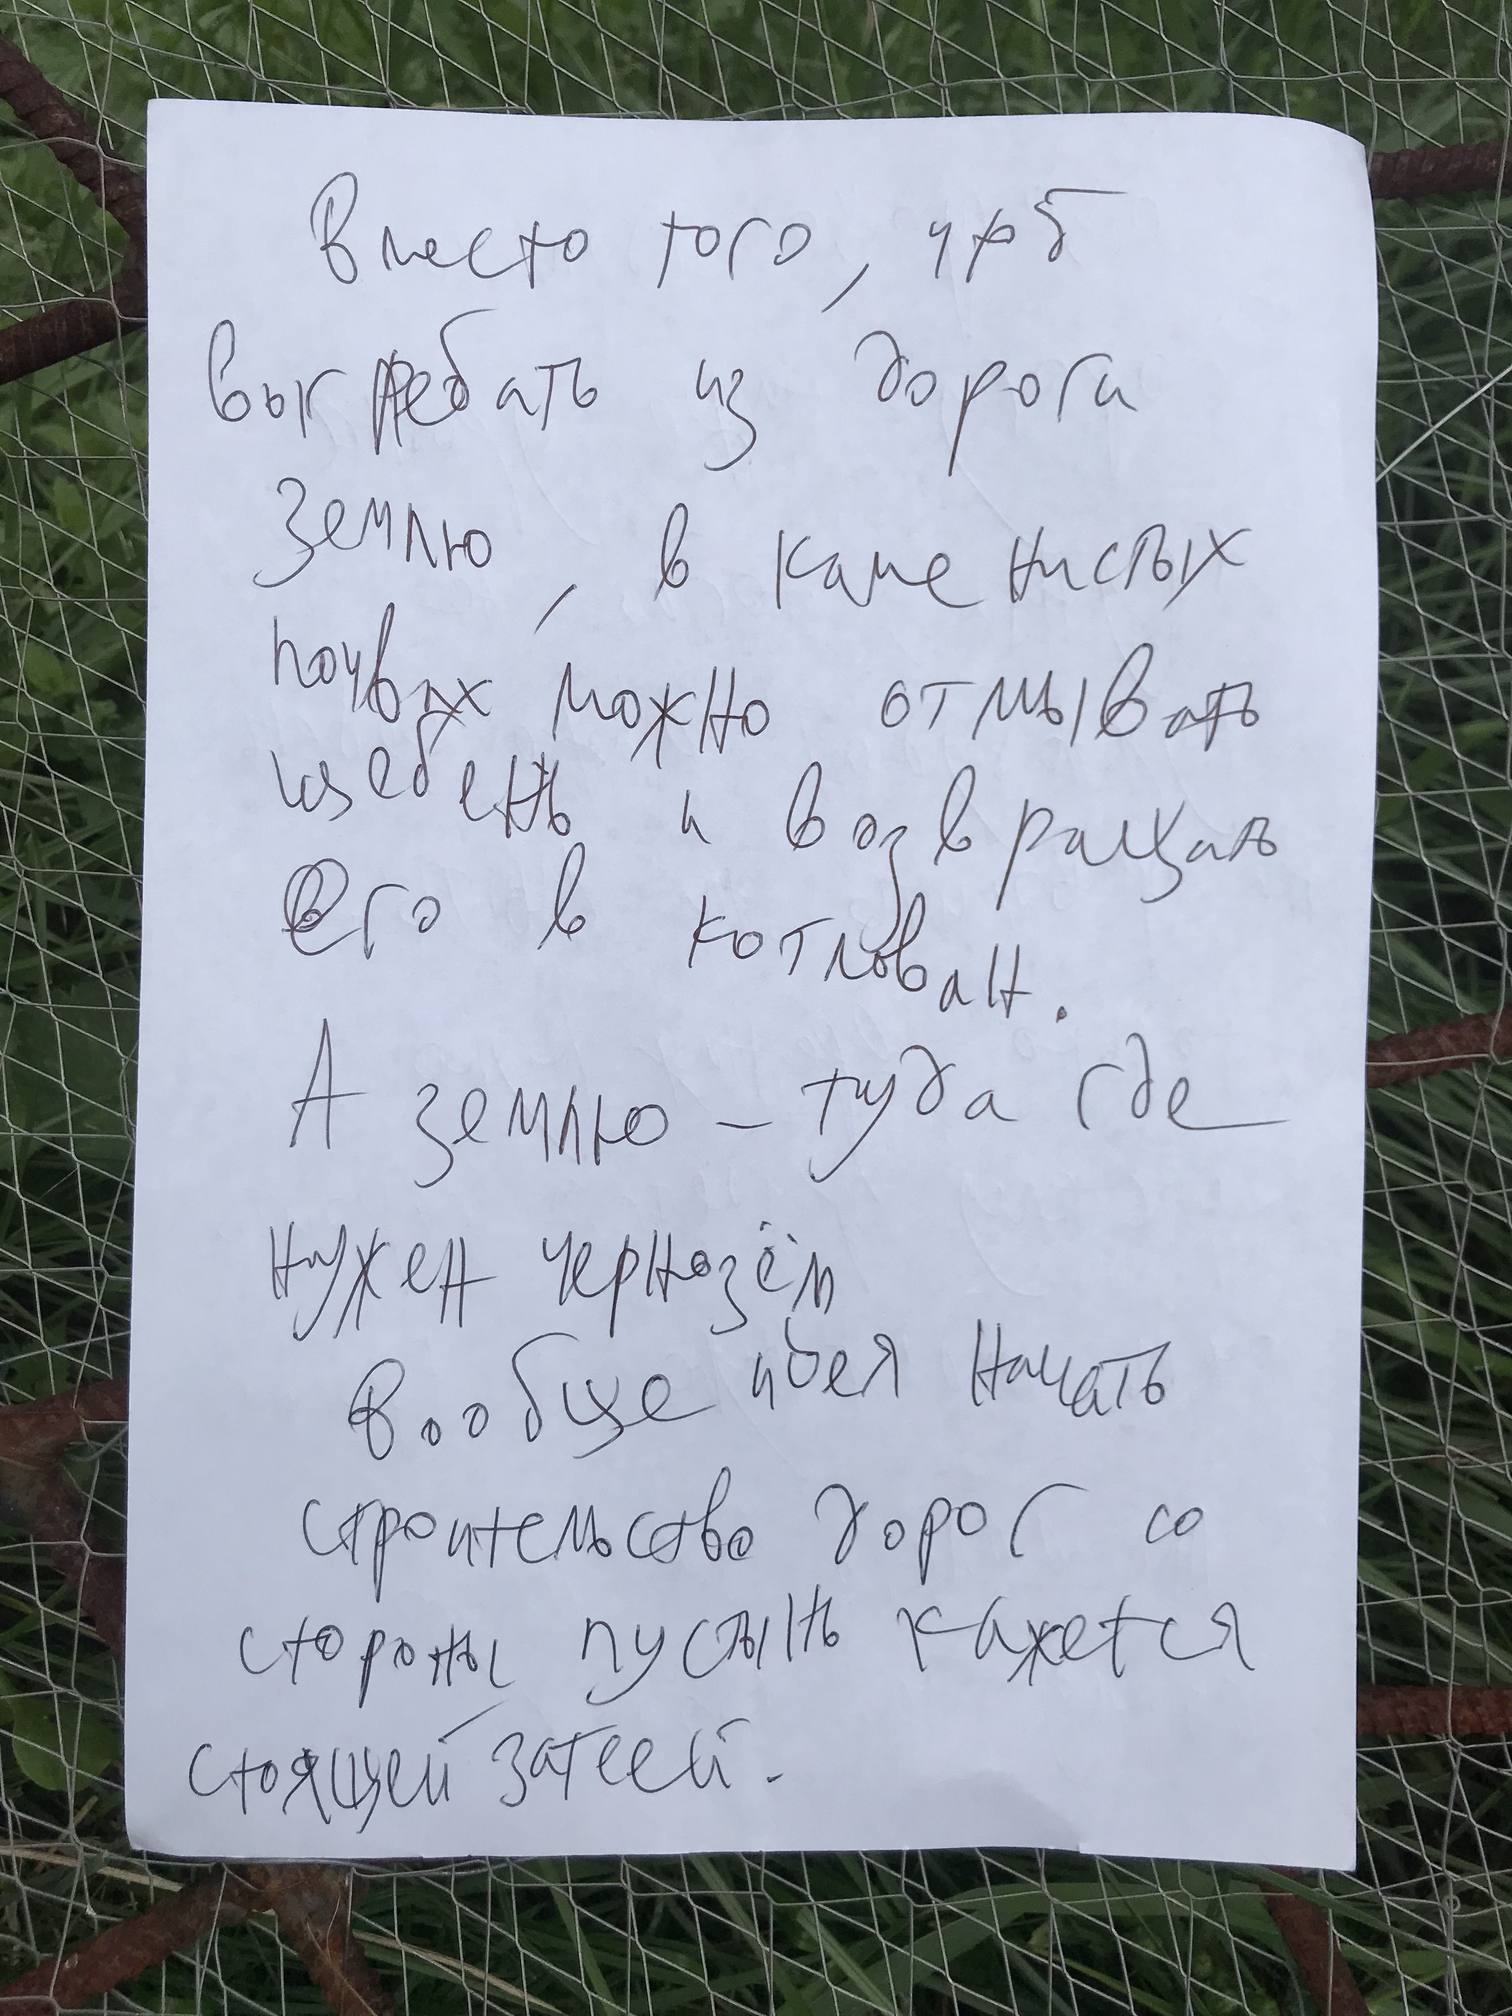 Вместо того, чтоб
выгребать из дороги
землю, в каменистых
почвах можно отмывать
щебень и возвращать
его в котлован.
А землю – туда где
нужен чернозём
Вообще идея начать
строительство дорог со
стороны пустынь кажется
стоящей затеей.